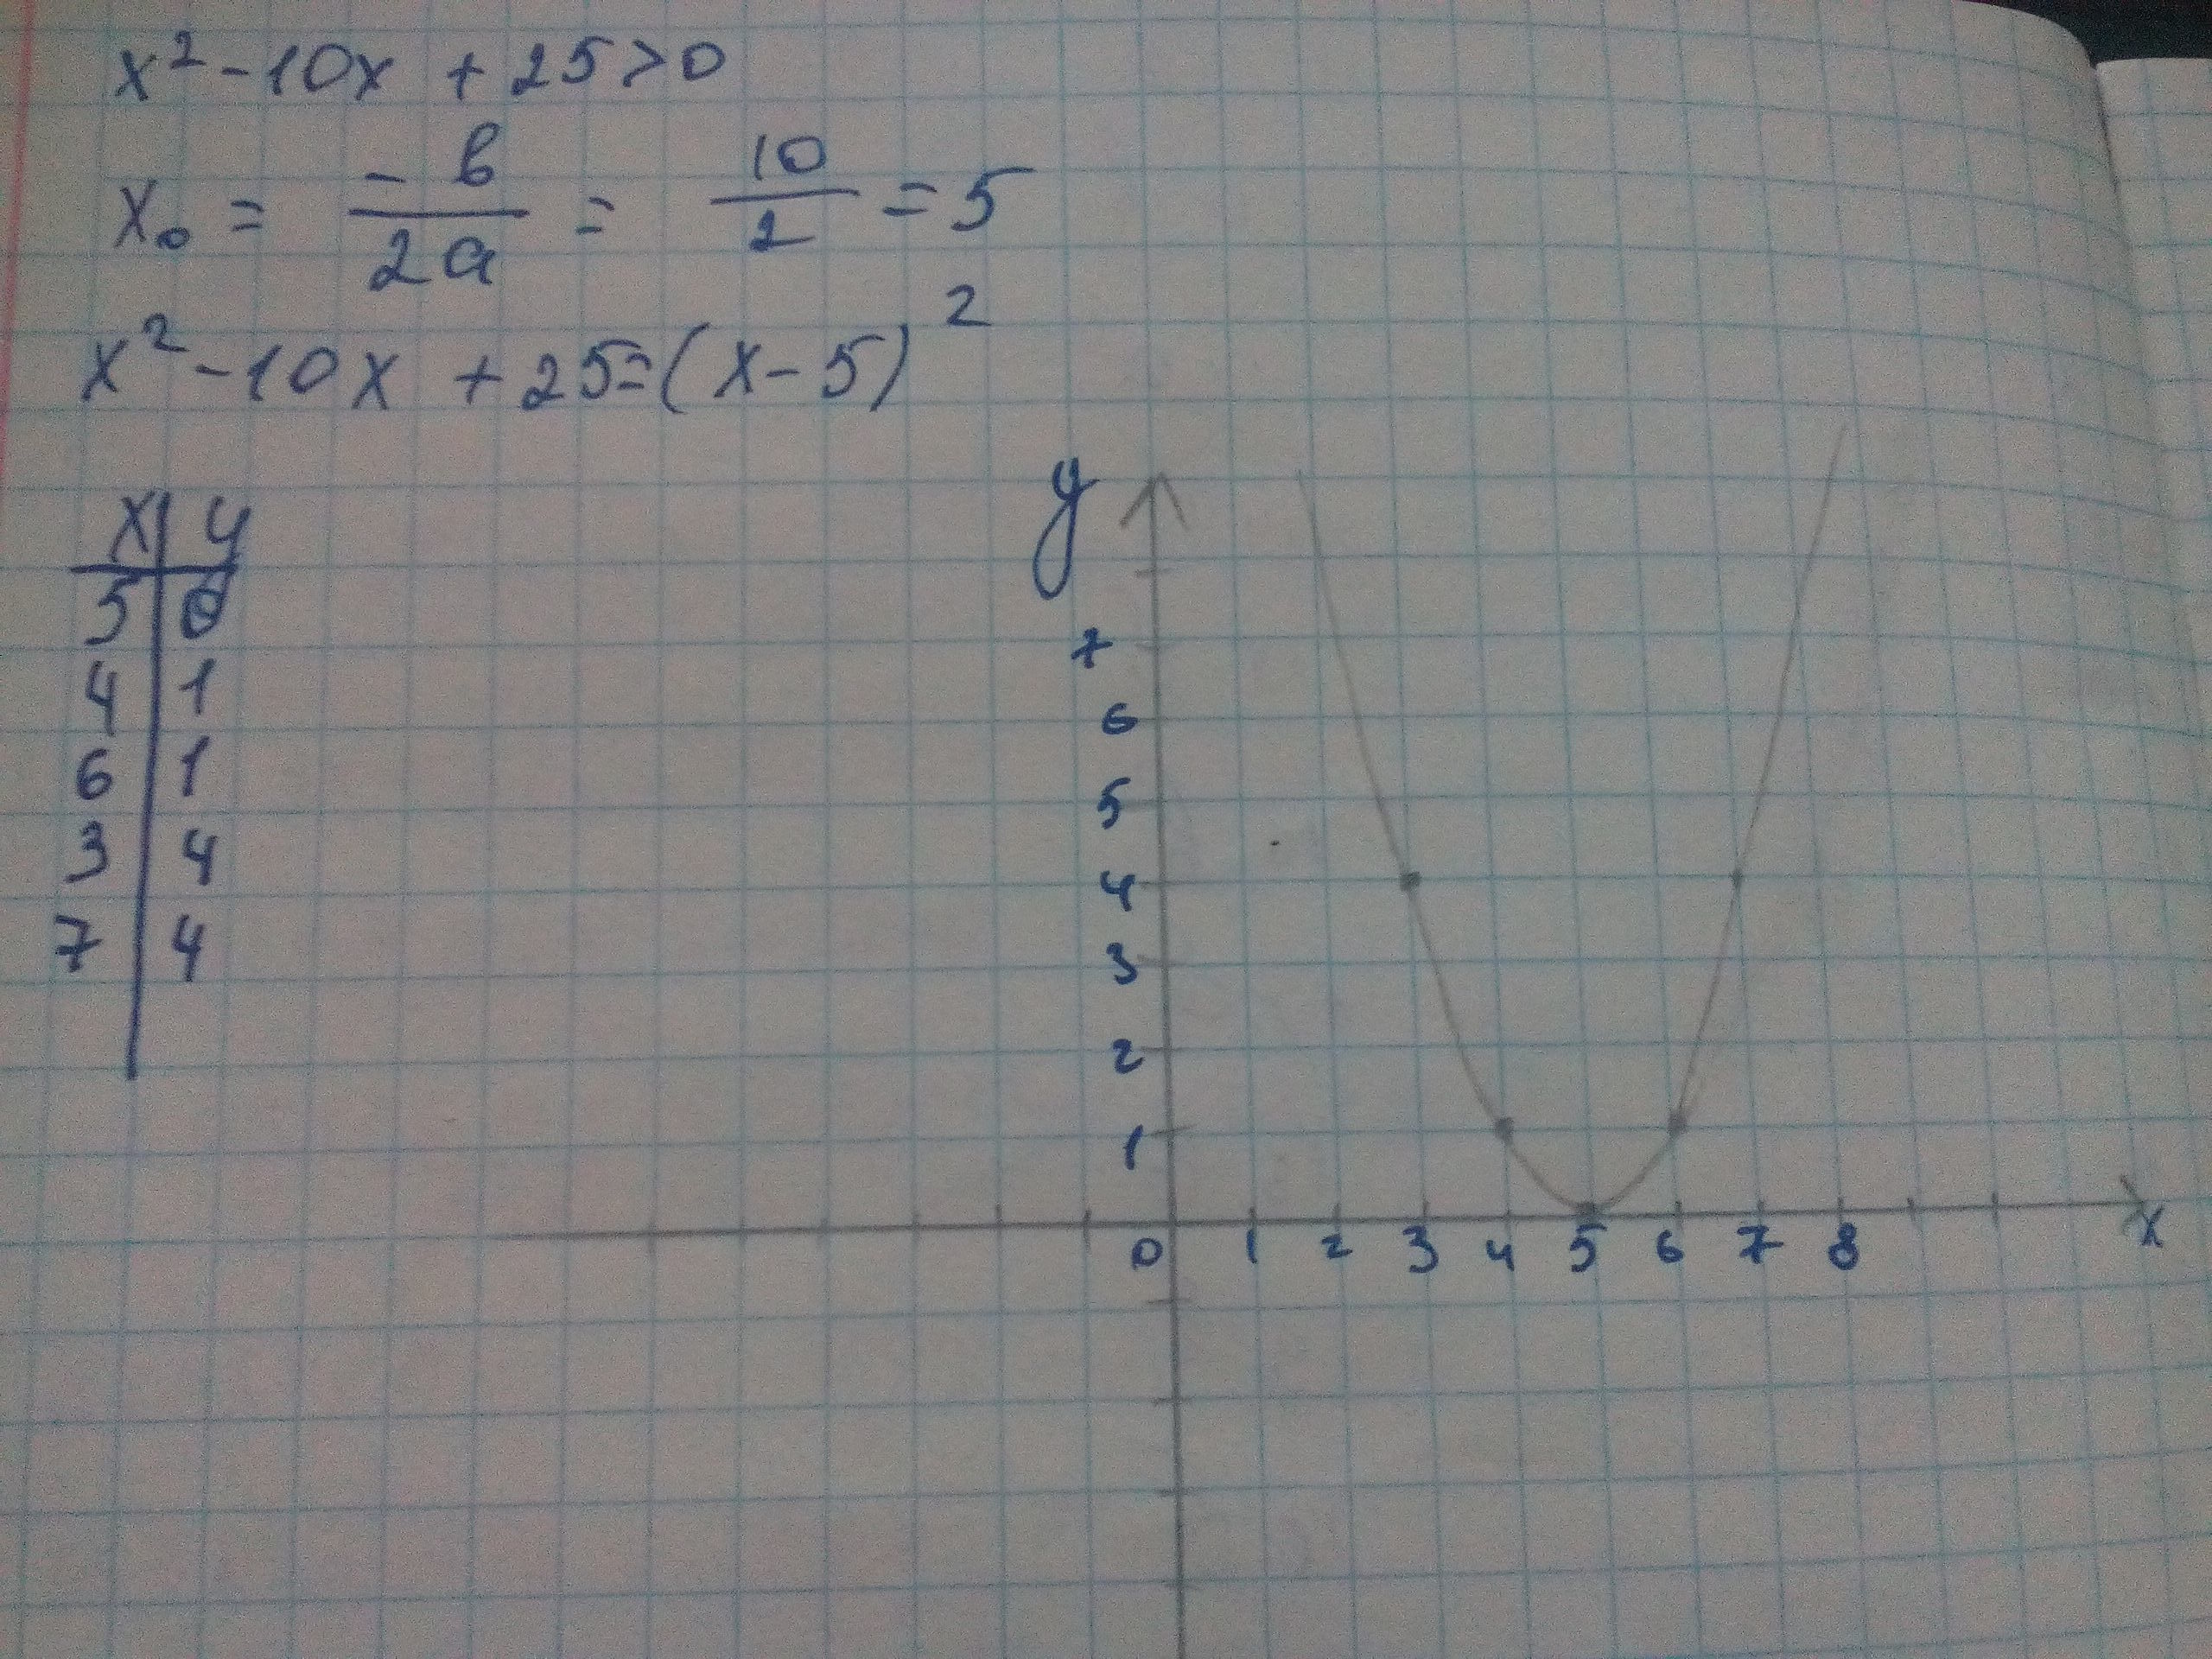 x² - 10x + 25 > 0
x₀ = -b/2a = 10/2 = 5
x² - 10x + 25 = (x - 5)²
x | y
5 | 0
4 | 1
6 | 1
3 | 4
7 | 4
y
7
6
5
4
3
2
1
0 1 2 3 4 5 6 7 8 x